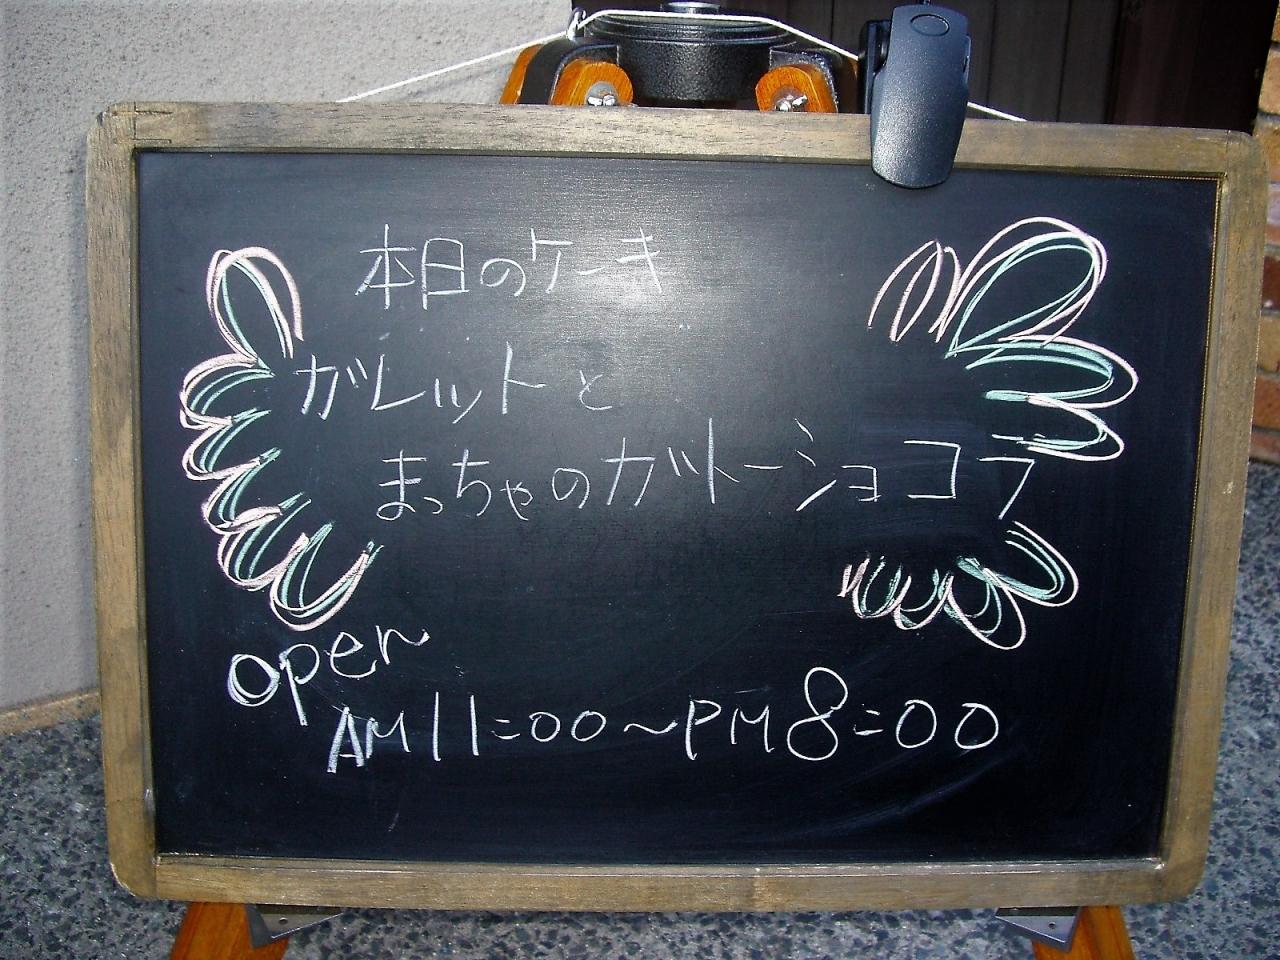 本日のケーキ
ガレットと
まっちゃのガトーショコラ
open
AM11:00～PM8:00